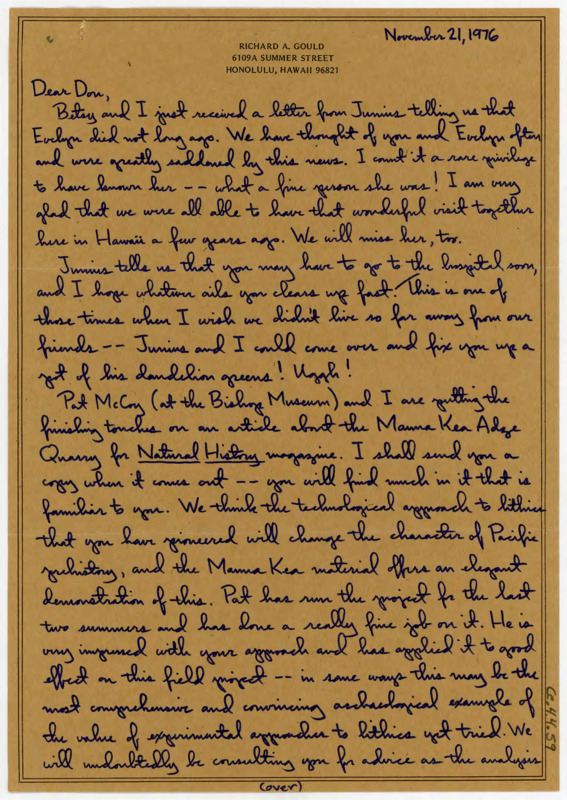 November 21, 1976
RICHARD A. GOULD
6109A SUMMER STREET
HONOLULU, HAWAII 96821
Dear Don,
Betsy and I just received a letter from Junius telling us that
Evelyn did not long ago. We have thought of you and Evelyn often
and were greatly saddened by this news. I count it a rare privilege
to have known her -- what a fine person she was! I am very
glad that we were all able to have that wonderful visit together
here in Hawaii a few years ago. We will miss her, too.
Junius tells us that you may have to go to the hospital soon,
and I hope whatever ails you clears up fast. This is one of
those times when I wish we didn't live so far away from our
friends -- Junius and I could come over and fix you up a
pot of his dandelion greens! Uggh!
Pat McCoy (at the Bishop Museum) and I are putting the
finishing touches on an article about the Mauna Kea Adze
Quarry for Natural History magazine. I shall send you a
copy when it comes out -- you will find much in it that is
familiar to you. We think the technological approach to lithics
that you have pioneered will change the character of Pacific
prehistory, and the Mauna Kea material offers an elegant
demonstration of this. Pat has run the project for the last
two summers and has done a really fine job on it. He is
very impressed with your approach and has applied it to good
effect on this field project -- in some ways this may be the
most comprehensive and convincing archaeological example of
the value of experimental approaches to lithics yet tried. We
will undoubtedly be consulting you for advice as the analysis
(over)
G.44.59